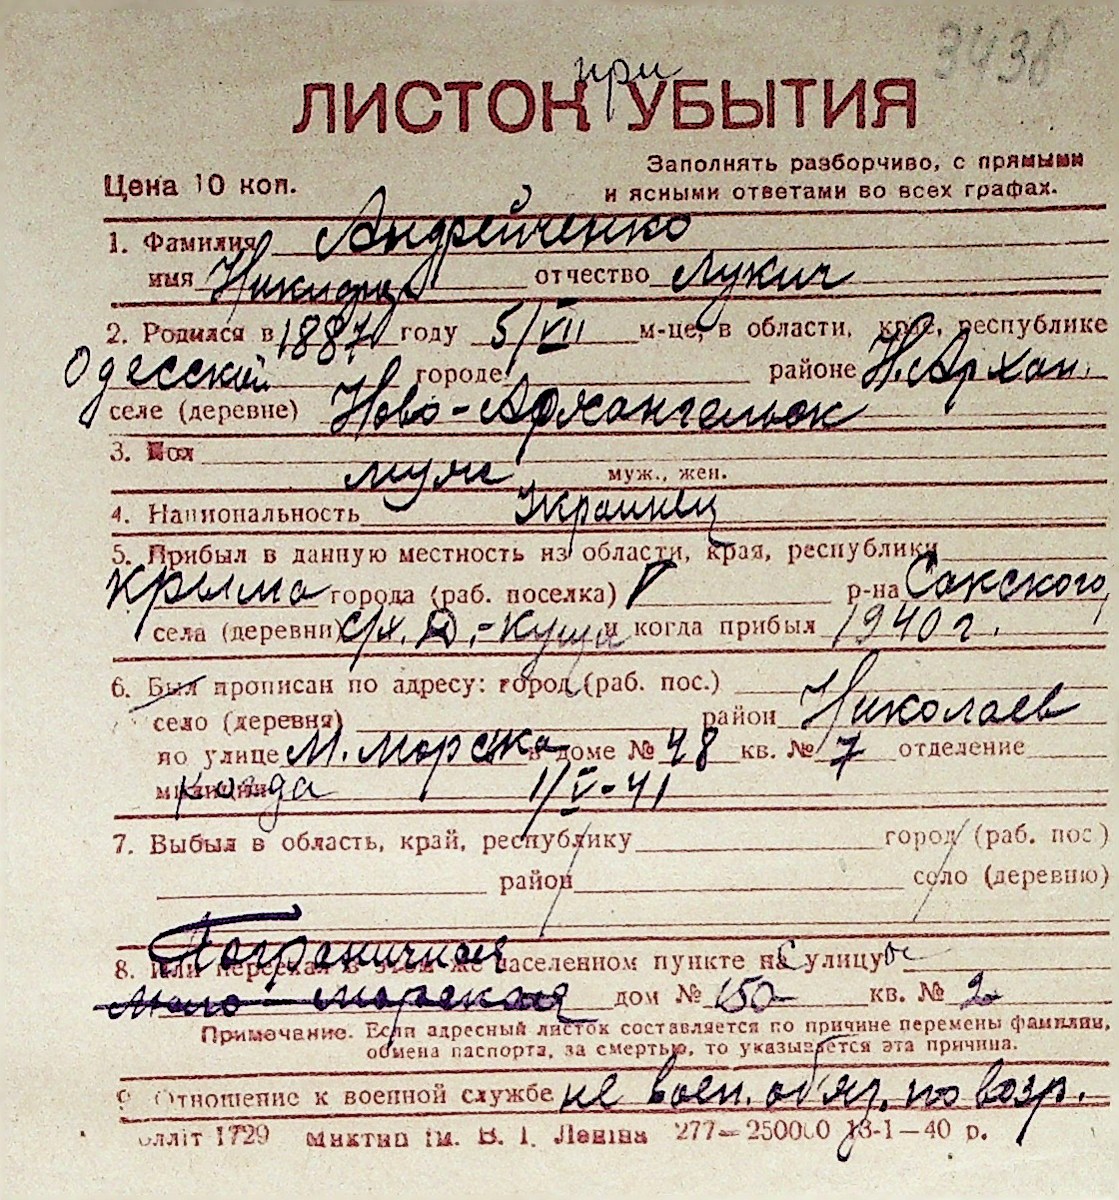 3438
при
ЛИСТОК УБЫТИЯ
Заполнять разборчиво, с прямыми
Цена 10 коп.
и ясными ответами во всех графах.
1. Фамилия Андрейченко
имя Никифор отчество Лукич
2. Родился в 1887 году 5/VII м-це, в области, крае, республике
Одесской городе районе Н.Архан.
селе (деревне) Ново-Архангельск
3. Пол
муж муж., жен.
4. Национальность Украинец
5. Прибыл в данную местность из области, края, республики
Крыма города (раб. поселка) р-на Сакского,
села (деревни) с/х. -Куща и когда прибыл 1940 г.
6. Был прописан по адресу: город (раб. пос.)
село (деревня) район Николаев
по улице М. Морская в доме № 48 кв. № 7 отделение
милиции когда 1/V-41
7. Выбыл в область, край, республику город (раб. пос.)
район село (деревню)
Пограничная
8. Или переехал в этом же населенном пункте на с улицу
Мало-Морская дом № 150 кв. № 2
Примечание. Если адресный листок составляется по причине перемены фамилии,
обмена паспорта, за смертью, то указывается эта причина.
9. Отношение к военной службе не воен. обяз. по возр.
Облліт 1729 ім. В. І. Леніна 277—250000 13-1—40 р.